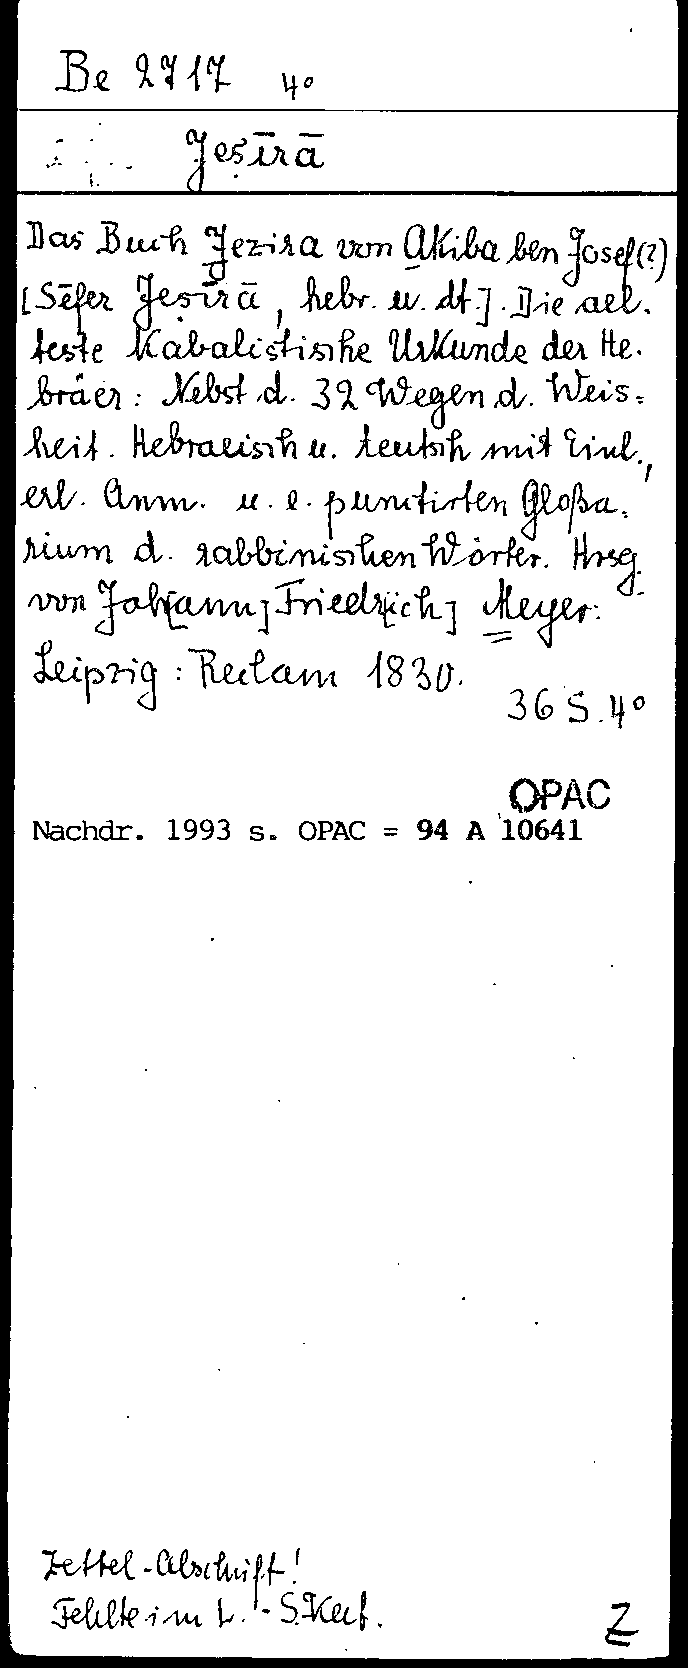 Be 2717 4°
Jeṣīrā
Das Buch Jezira von Akiba ben Josef(?)
[Sēfer Jeṣīrā, hebr. u. dt.]. Die ael-
teste Kabalistische Urkunde der He-
bräer: Nebst d. 32 Wegen d. Weis-
heit. Hebraeisch u. teutsch mit Einl.,
erl. Anm. u. e. punctirten Gloßa-
rium d. rabbinischen Wörter. Hrsg.
von Joh[ann] Friedr[ich] Meyer:
Leipzig: Reclam 1830.
36 S. 4°
OPAC
Nachdr. 1993 s. OPAC = 94 A 10641
Zettel-Abschrift!
Fehlte im L. - S.
Z